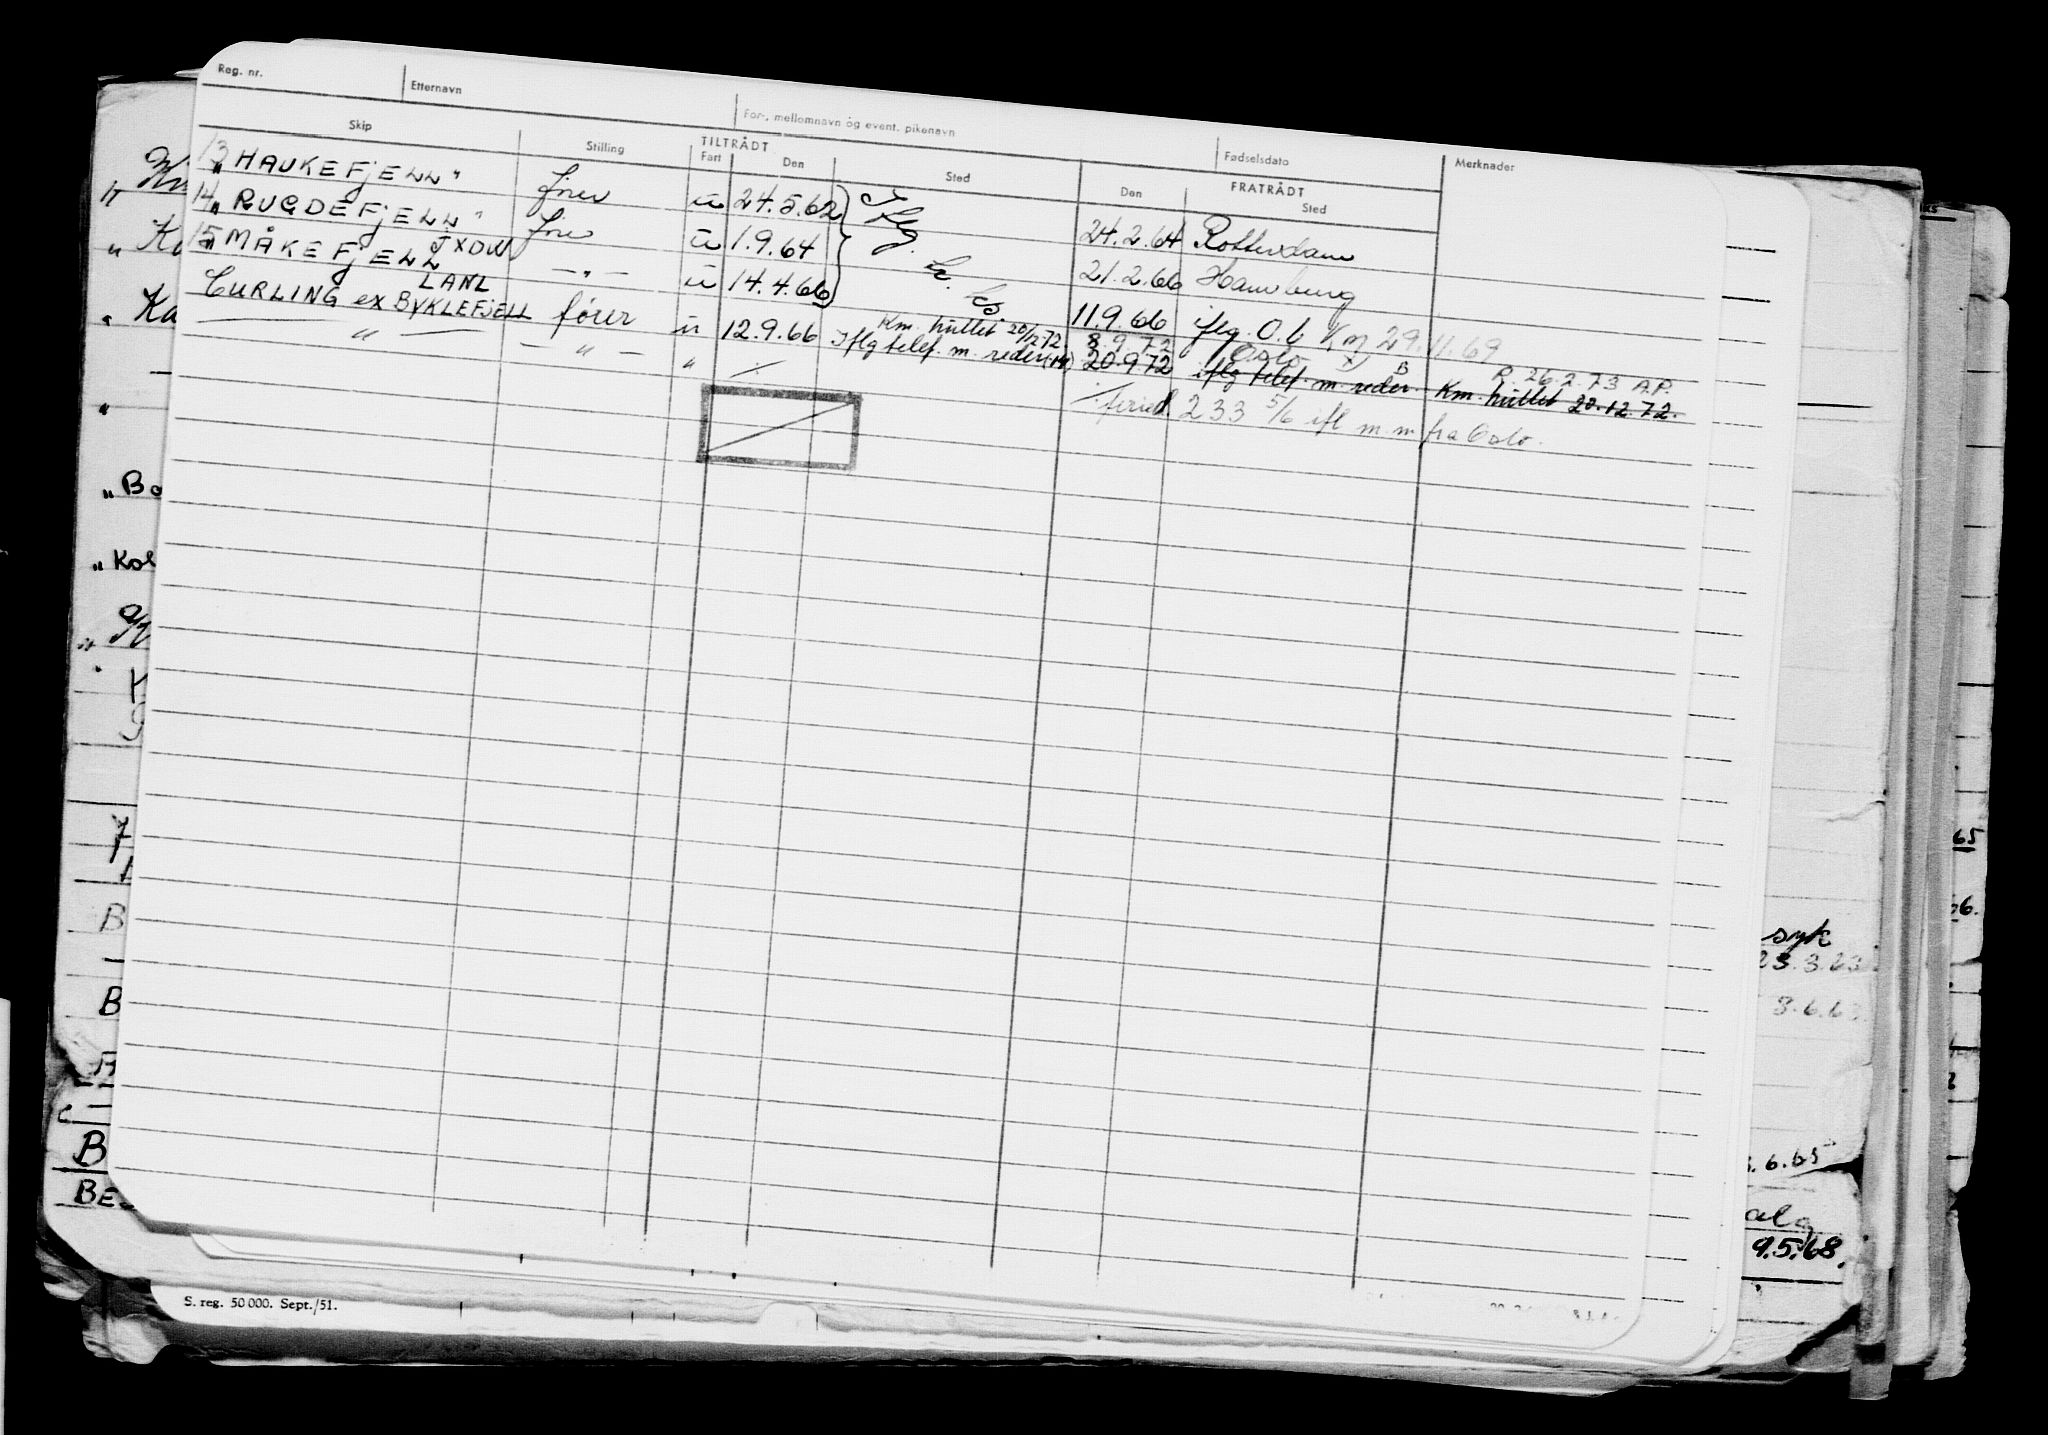 Reg. nr. Etternavn For-, mellomnavn og event. pikenavn Fødselsdato Merknader
Skip Stilling TILTRÅDT FRATRÅDT
Fart Den Sted Den Sted
13 "HAUKEFJELL" fører u 24.5.62 24.2.64 Rotterdam
14 "RUGDEFJELL" fører u 1.9.64 21.2.66 Hamburg
JXOW
15 "MÅKEFJELL — " — u 14.4.66 11.9.66 iflg. O.b. Km 29.11.69
LANL
CURLING ex BYKLEFJELL fører u 12.9.66 Km. hullet 20/12 72. 8.9.72 Oslo x) R. 26.2.73 A.P.
— " — — " — " Iflg telef. m. reder 20.9.72 iflg telef. m. reder. Km. hullet 20.12.72.
233 5/6 ifl m.m fra Oslo.
Ka
"Bo
"Kol
B
B
B
BE
65
66.
syk
23.3.63
8.6.6
.6.65
alg
9.5.68.
S. reg. 50 000. Sept./51.